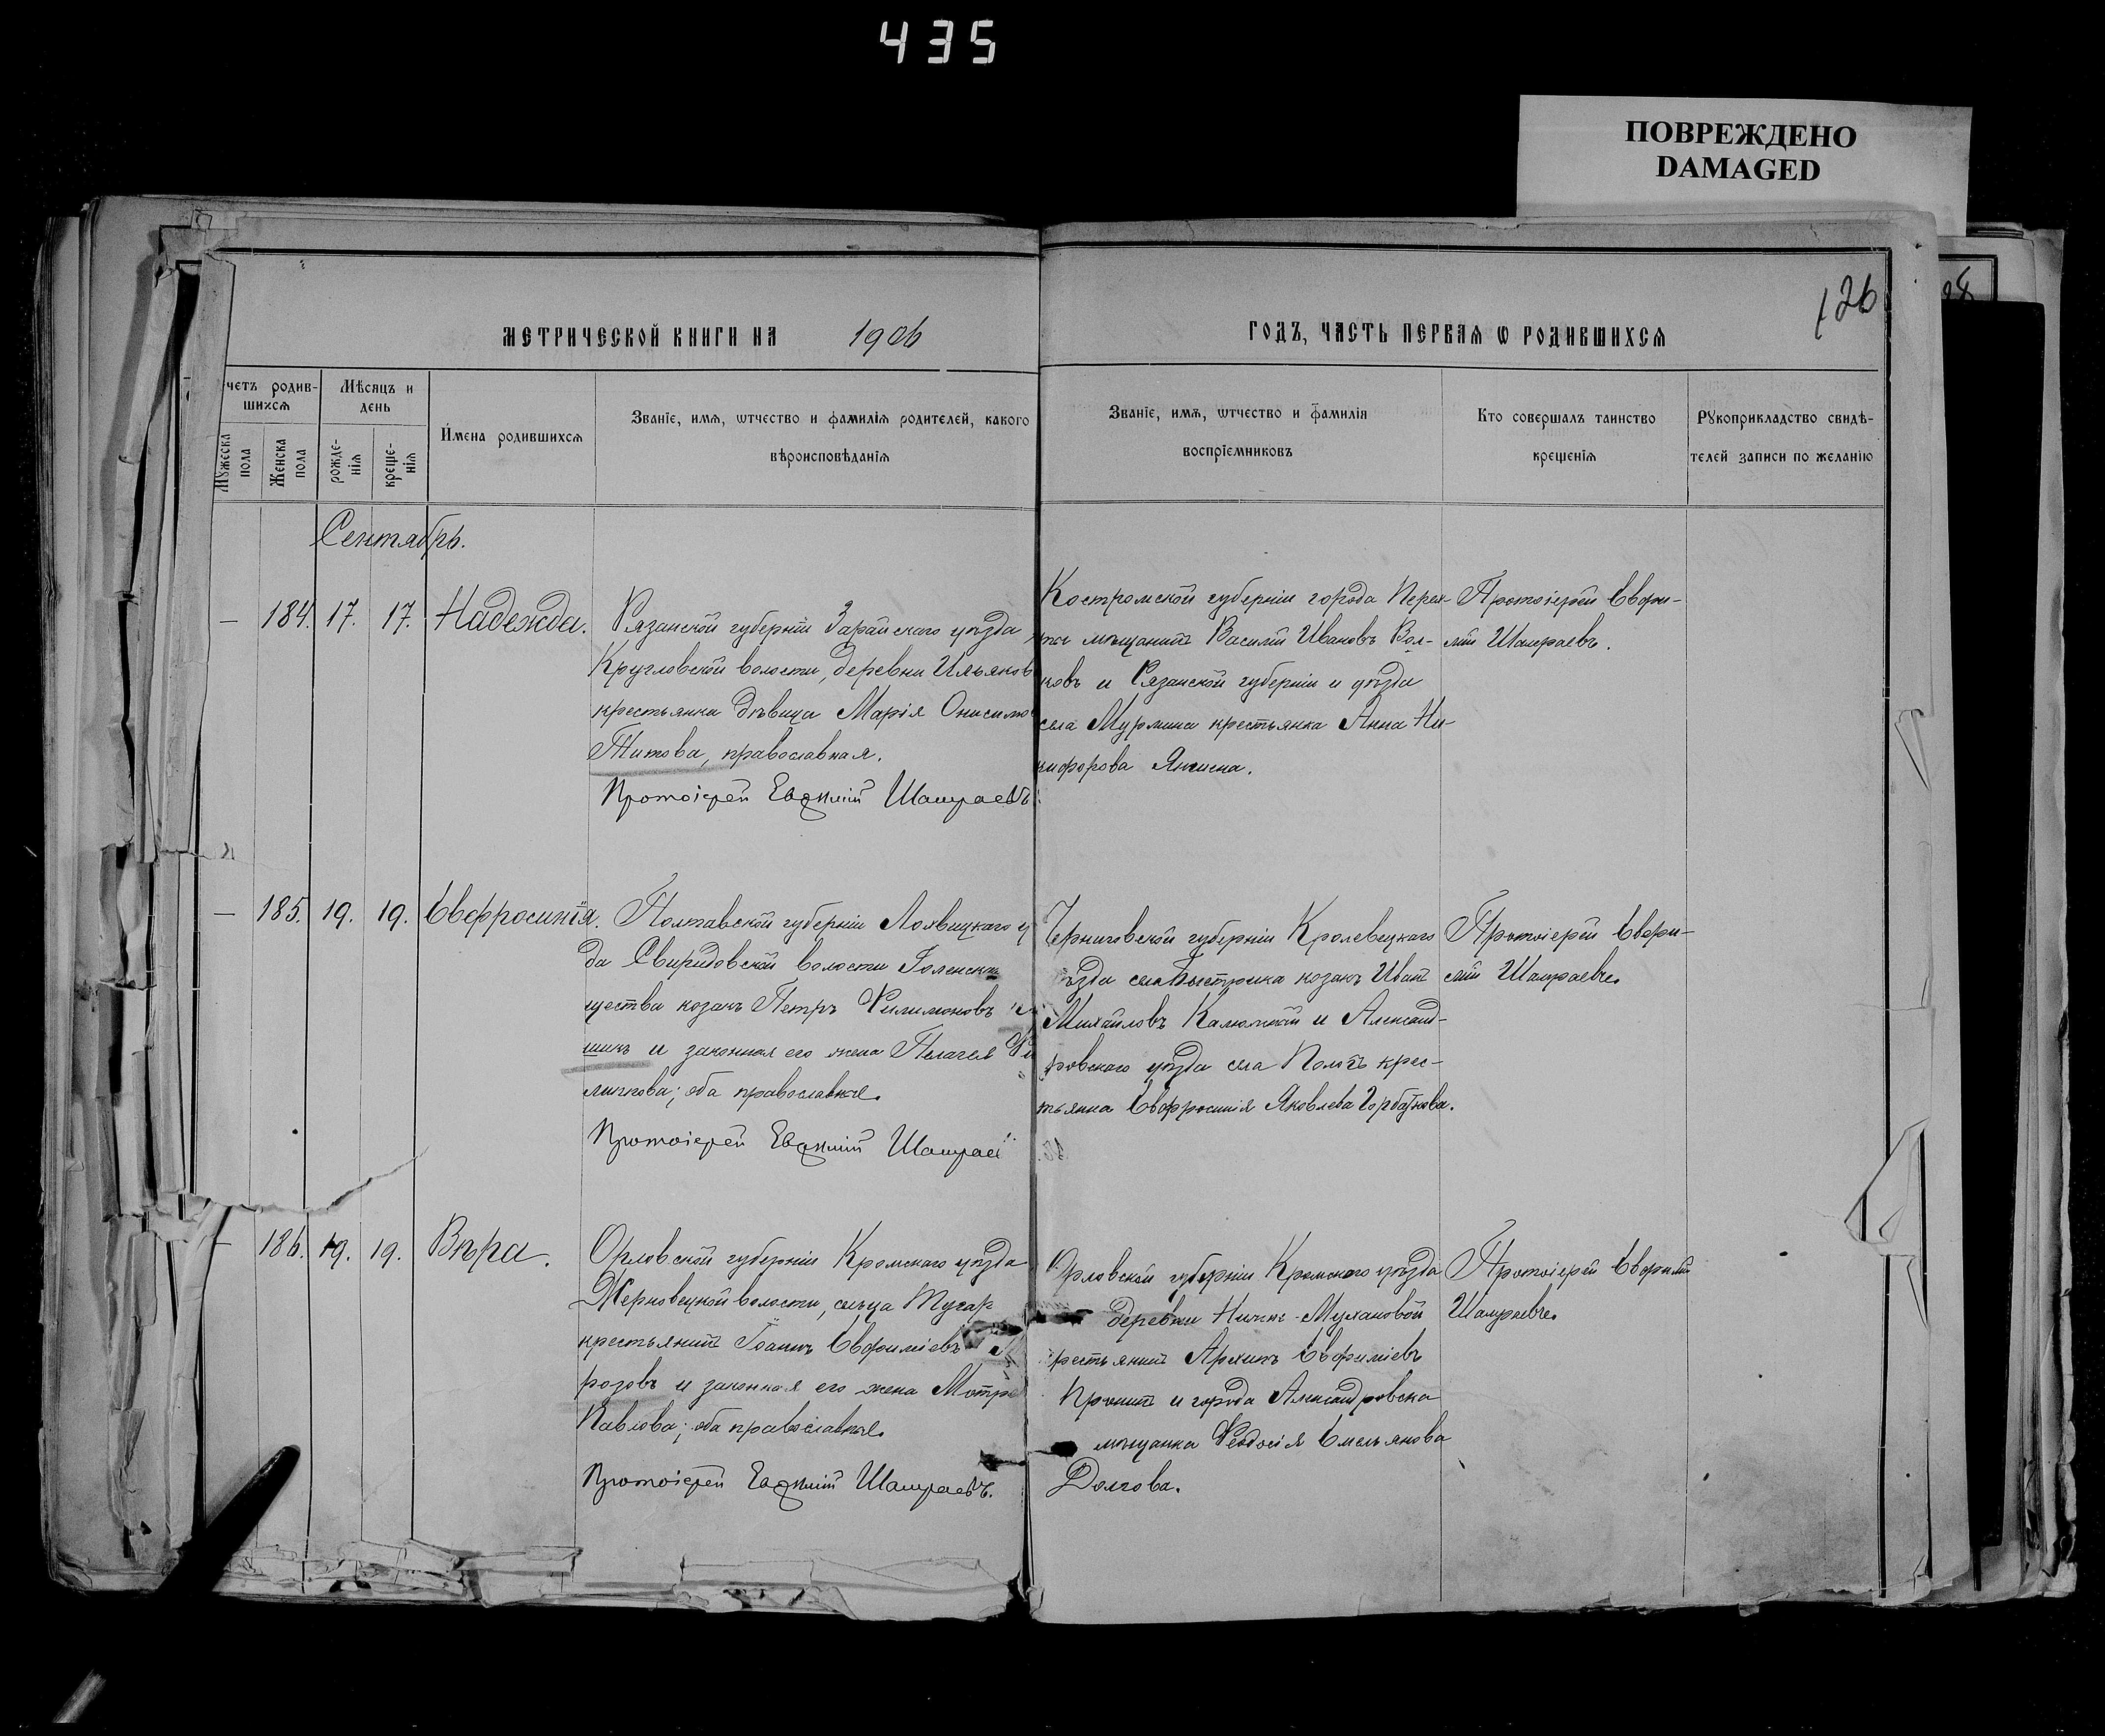 435
ПОВРЕЖДЕНО
DAMAGED
126
МЕТРИЧЕСКОЙ КНИГИ НА 1906
ГОДЪ, ЧАСТЬ ПЕРВАЯ Ѡ РОДИВШИХСЯ
четъ родив-
шихся
Мѣсяцъ и
день
Мужеска
пола
Женска
пола
рожде-
нія
креще-
нія
Имена родившихся
Званіе, имя, ѡтчество и фамилія родителей, какого
вѣроисповѣданія
Званіе, имя, ѡтчество и фамилія
воспріемниковъ
Кто совершалъ таинство
крещенія
Рукоприкладство свидѣ-
телей записи по желанію
Сентябрь.
— 184. 17. 17. Надежда.
Рязанской губерніи Зарайскаго уѣзда
Кругловской волости, деревни Ильянов
крестьянка дѣвица Марія Онисимо
Титова, православная.
Протоіерей Евѳимій Шамраевъ
Костромской губерніи города Нерех-
ты мѣщанинъ Василій Ивановъ Вол-
ковъ и Рязанской губерніи и уѣзда
села Мурмина крестьянка Анна Ни-
кифорова
Протоіерей Евфи-
мій Шамраевъ.
— 185. 19. 19. Евфросинія.
Полтавской губерніи Лохвицкаго у
да Свиридовской волости
щества козакъ Петръ Филимоновъ
шикъ и законная его жена Пелагея Фи
липпова; оба православные.
Протоіерей Евѳимій Шамрае
Черниговской губерніи Кролевецкаго
ѣзда села Быстрика козакъ Иванъ
Михайловъ Калюжный и Александ-
ровскаго уѣзда села Пологъ крес-
тьянка Евфросинія Яковлева Горбачкова.
Протоіерей Евфи-
мій Шамраевъ.
— 186. 19. 19. Вѣра.
Орловской губерніи Кромскаго уѣзда
Жерновецкой волости, сельца Тугар
крестьянинъ Іоаннъ Евфиміевъ
розовъ и законная его жена Матре
Павлова; оба православные.
Протоіерей Евѳимій Шамраевъ.
Орловской губерніи Кромскаго уѣзда
деревни Мухановой
рестьянинъ Архипъ Евфиміевъ
Пронинъ и города Александровска
мѣщанка Ѳеодосія Емельянова
Долгова.
Протоіерей Евфимій
Шамраевъ.